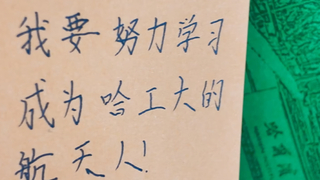 我要努力学习
成为哈工大的
航天人!